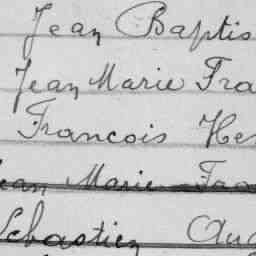 Jean Baptis
Jean Marie Fra
Francois He
Jean Marie Fra
Sebastien Aug